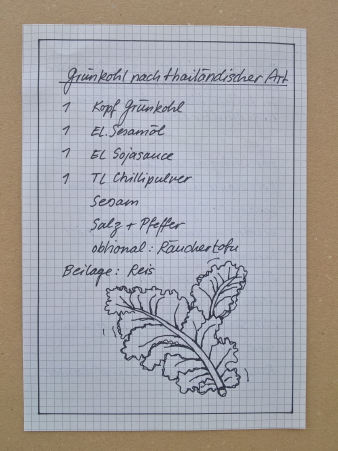 Grünkohl nach thailändischer Art
1 Kopf Grünkohl
1 EL. Sesamöl
1 EL Sojasauce
1 TL Chillipulver
Sesam
Salz + Pfeffer
obtional: Räuchertofu
Beilage: Reis